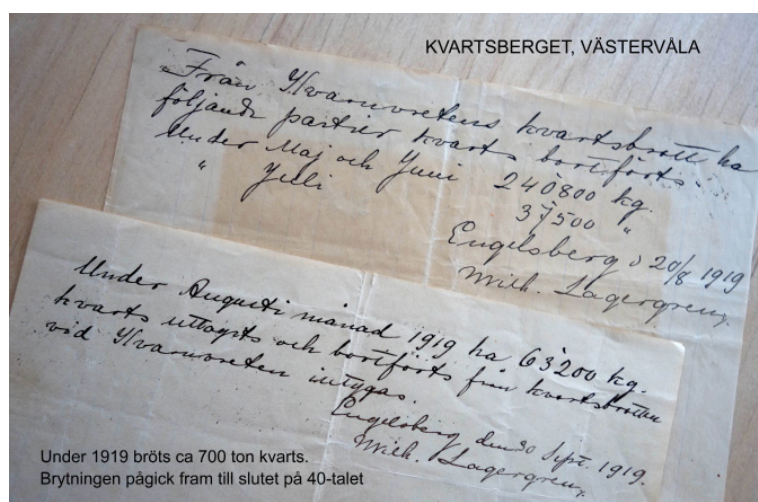 KVARTSBERGET, VÄSTERVÅLA
Från Kvarnvretens kvartsbrott ha
följande partier kvarts bortförts.
Under Maj och Juni 240800 kg.
" Juli 37500 "
Engelsberg d 20/8 1919
Wilh. Lagergren
Under Augusti månad 1919 ha 63200 kg.
kvarts uttagits och bortförts från kvartsbrotten
vid Kvarnvreten intygas.
Engelsberg den 30 Sept. 1919.
Wilh. Lagergren
Under 1919 bröts ca 700 ton kvarts.
Brytningen pågick fram till slutet på 40-talet